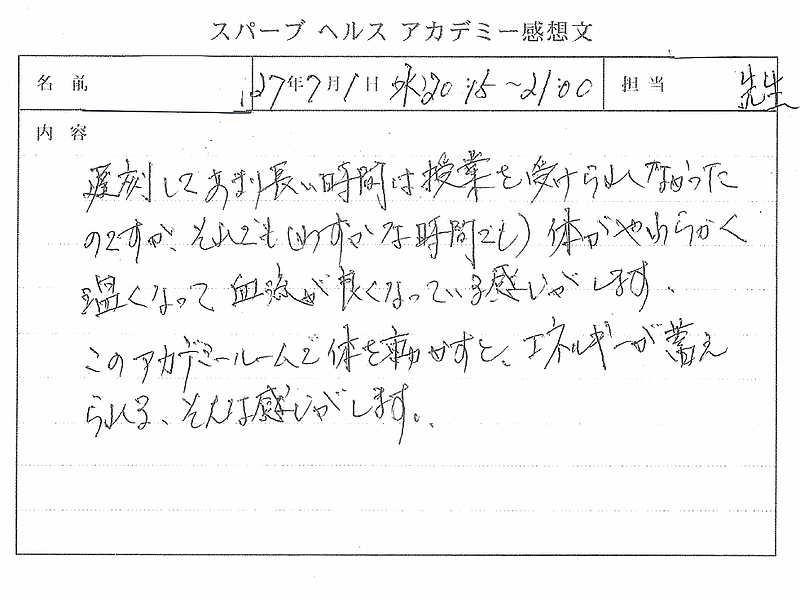 スパーブ ヘルス アカデミー感想文
名 前 27年7月1日 水 20:15～21:00 担 当 先生
内 容
遅刻してあまり長い時間は授業を受けられなかった
のですが、それでも(わずかな時間でも)体がやわらかく
温くなって血流が良くなっている感じがします。
このアカデミールームで体を動かすと、エネルギーが蓄え
られる、そんな感じがします。